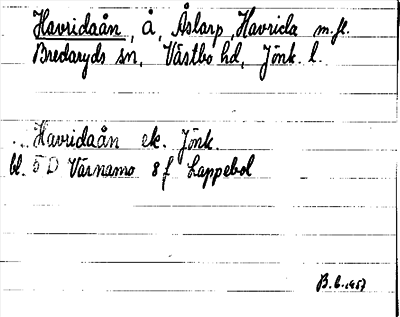 Havridaån, å, Åslarp, Havrida m.fl.
Bredaryds sn, Västbo hd, Jönk. l.
Havridaån ek. Jönk.
bl. 5 D Värnamo 8 f Lappebol
B.b. 1957